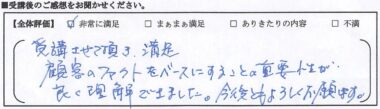 ■受講後のご感想をお聞かせください。
【全体評価】 ☑ 非常に満足 □ まぁまぁ満足 □ ありきたりの内容 □ 不満
受講させて頂き、満足
顧客のファクトをベースにすることの重要性が
良く理解できました。今後ともよろしくお願い致します。